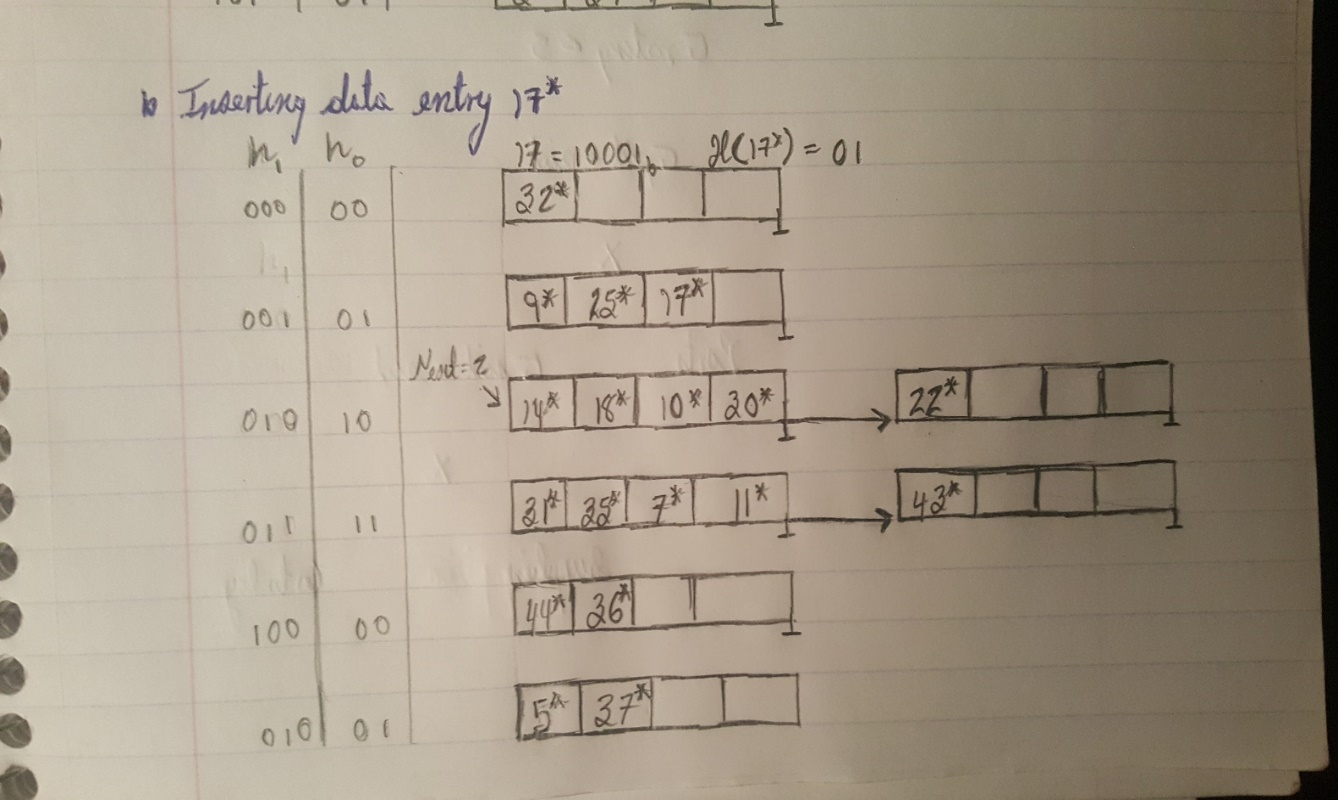 b Inserting data entry 17*
h₁ h₀ 17 = 10001b H(17*) = 01
000 00 32*
001 01 9* 25* 17*
Next=2
010 10 14* 18* 10* 30* 22*
011 11 31* 35* 7* 11* 43*
100 00 44* 36*
010 01 5* 37*